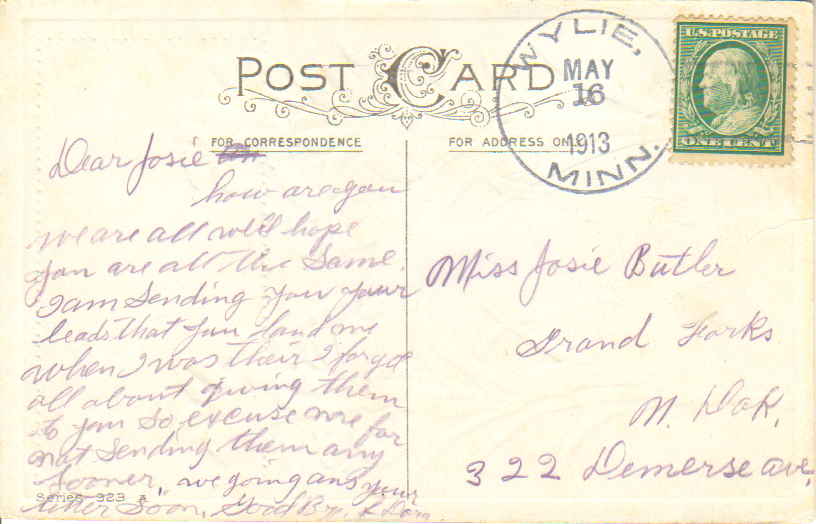 POST CARD
FOR CORRESPONDENCE
FOR ADDRESS ONLY
WYLIE,
MAY
16
1913
MINN.
U.S. POSTAGE
ONE CENT
Dear Josie
how are you
we are all well hope
you are all the Same.
I am Sending you your
beads that you land me
when I was their I forgot
all about giving them
to you So excuse me for
not Sending them any
Sooner, we going ans your
letter Soon, Good Bye.
Series 923
Miss Josie Butler
Grand Forks
N. Dak,
322 Demerse ave,